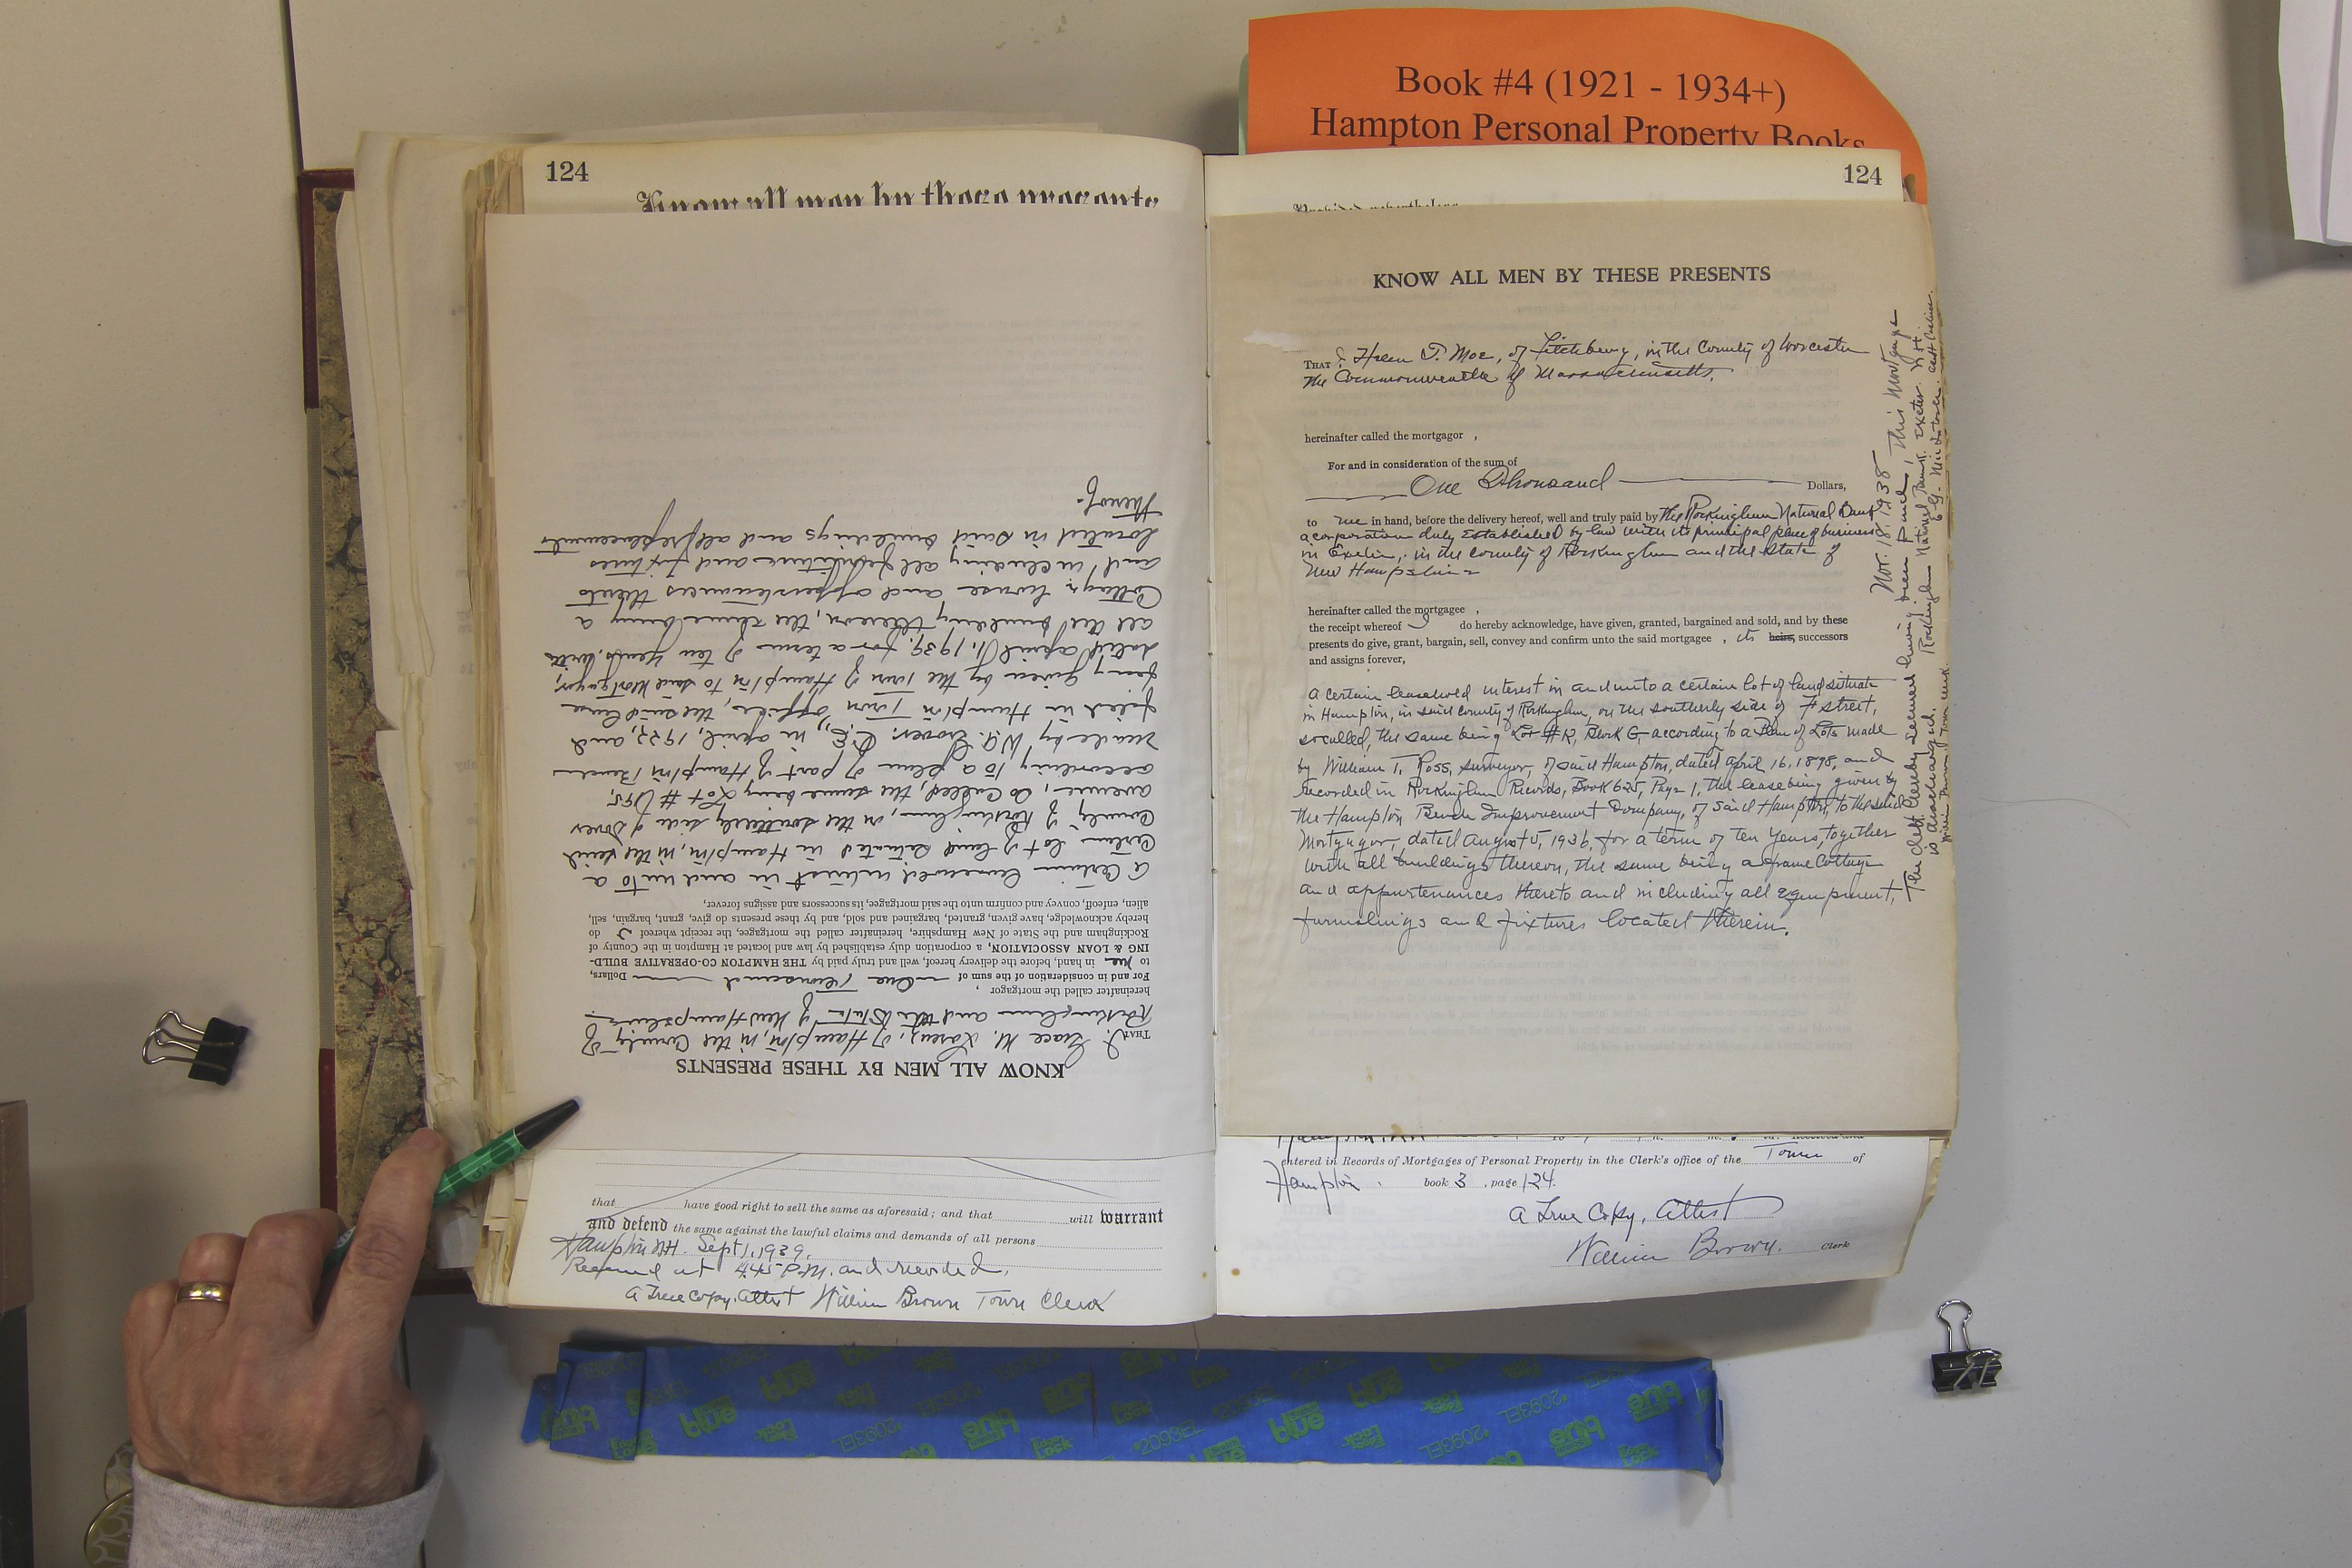 Book #4 (1921 - 1934+)
Hampton Personal Property Books
124
Know all men by these presents
KNOW ALL MEN BY THESE PRESENTS
THAT I, Grace M. Lorenz, of Hampton, in the County of
Rockingham and the State of New Hampshire
hereinafter called the mortgagor ,
For and in consideration of the sum of One Thousand Dollars,
to me in hand, before the delivery hereof, well and truly paid by THE HAMPTON CO-OPERATIVE BUILD-
ING & LOAN ASSOCIATION, a corporation duly established by law and located at Hampton in the County of
Rockingham and the State of New Hampshire, hereinafter called the mortgagee, the receipt whereof I do
hereby acknowledge, have given, granted, bargained and sold, and by these presents do give, grant, bargain, sell,
alien, enfeoff, convey and confirm unto the said mortgagee, its successors and assigns forever,
a certain leasehold interest in and unto a
certain lot of land situated in Hampton, in the said
County of Rockingham, on the southerly side of Dover
avenue, so called, the same being Lot #
according to a plan of part of Hampton Beach
made by W.A. Grover, C.E., in April, 1922, and
filed in Hampton Town Office, the said lease
being given by the Town of Hampton to said Mortgagor,
dated April 1, 1939, for a term of ten years, with
all the building thereon, the same being a
Cottage house and appurtenances thereto
and including all furniture and fixtures
located in said buildings and all replacements
thereof.
that have good right to sell the same as aforesaid; and that will warrant
and defend the same against the lawful claims and demands of all persons
Hampton NH. Sept 1, 1939.
Received at 4:45 P.M. and recorded,
A True Copy, Attest William Brown Town Clerk
124
KNOW ALL MEN BY THESE PRESENTS
THAT I, Helen T. Moe, of Fitchburg, in the County of Worcester
the Commonwealth of Massachusetts,
hereinafter called the mortgagor ,
For and in consideration of the sum of
One Thousand Dollars,
to me in hand, before the delivery hereof, well and truly paid by the Rockingham National Bank
a corporation duly established by law with its principal place of business
in Exeter, in the county of Rockingham and the State of
New Hampshire
hereinafter called the mortgagee ,
the receipt whereof I do hereby acknowledge, have given, granted, bargained and sold, and by these
presents do give, grant, bargain, sell, convey and confirm unto the said mortgagee , its heirs, successors
and assigns forever,
a certain leasehold interest in and unto a certain lot of land situate
in Hampton, in said County of Rockingham, on the southerly side of F street,
so called, the same being Lot #12, Block G, according to a Plan of Lots made
by William T. Ross, surveyor, of said Hampton, dated April 16, 1898, and
recorded in Rockingham Records, Book 625, Page 1, the lease being given by
the Hampton Beach Improvement Company, of said Hampton, to the said
Mortgagor, dated August 5, 1936, for a term of ten Years, together
with all buildings thereon, the same being a frame Cottage
and appurtenances thereto and including all equipment,
furnishings and fixtures located therein.
Nov. 18, 1938
The debt hereby secured having been paid, this mortgage
is discharged. Rockingham National Bank. Exeter N.H.
William Brown, Town Clerk
entered in Records of Mortgages of Personal Property in the Clerk's office of the Town of
Hampton, book 3 , page 124.
A True Copy, Attest
William Brown. Clerk